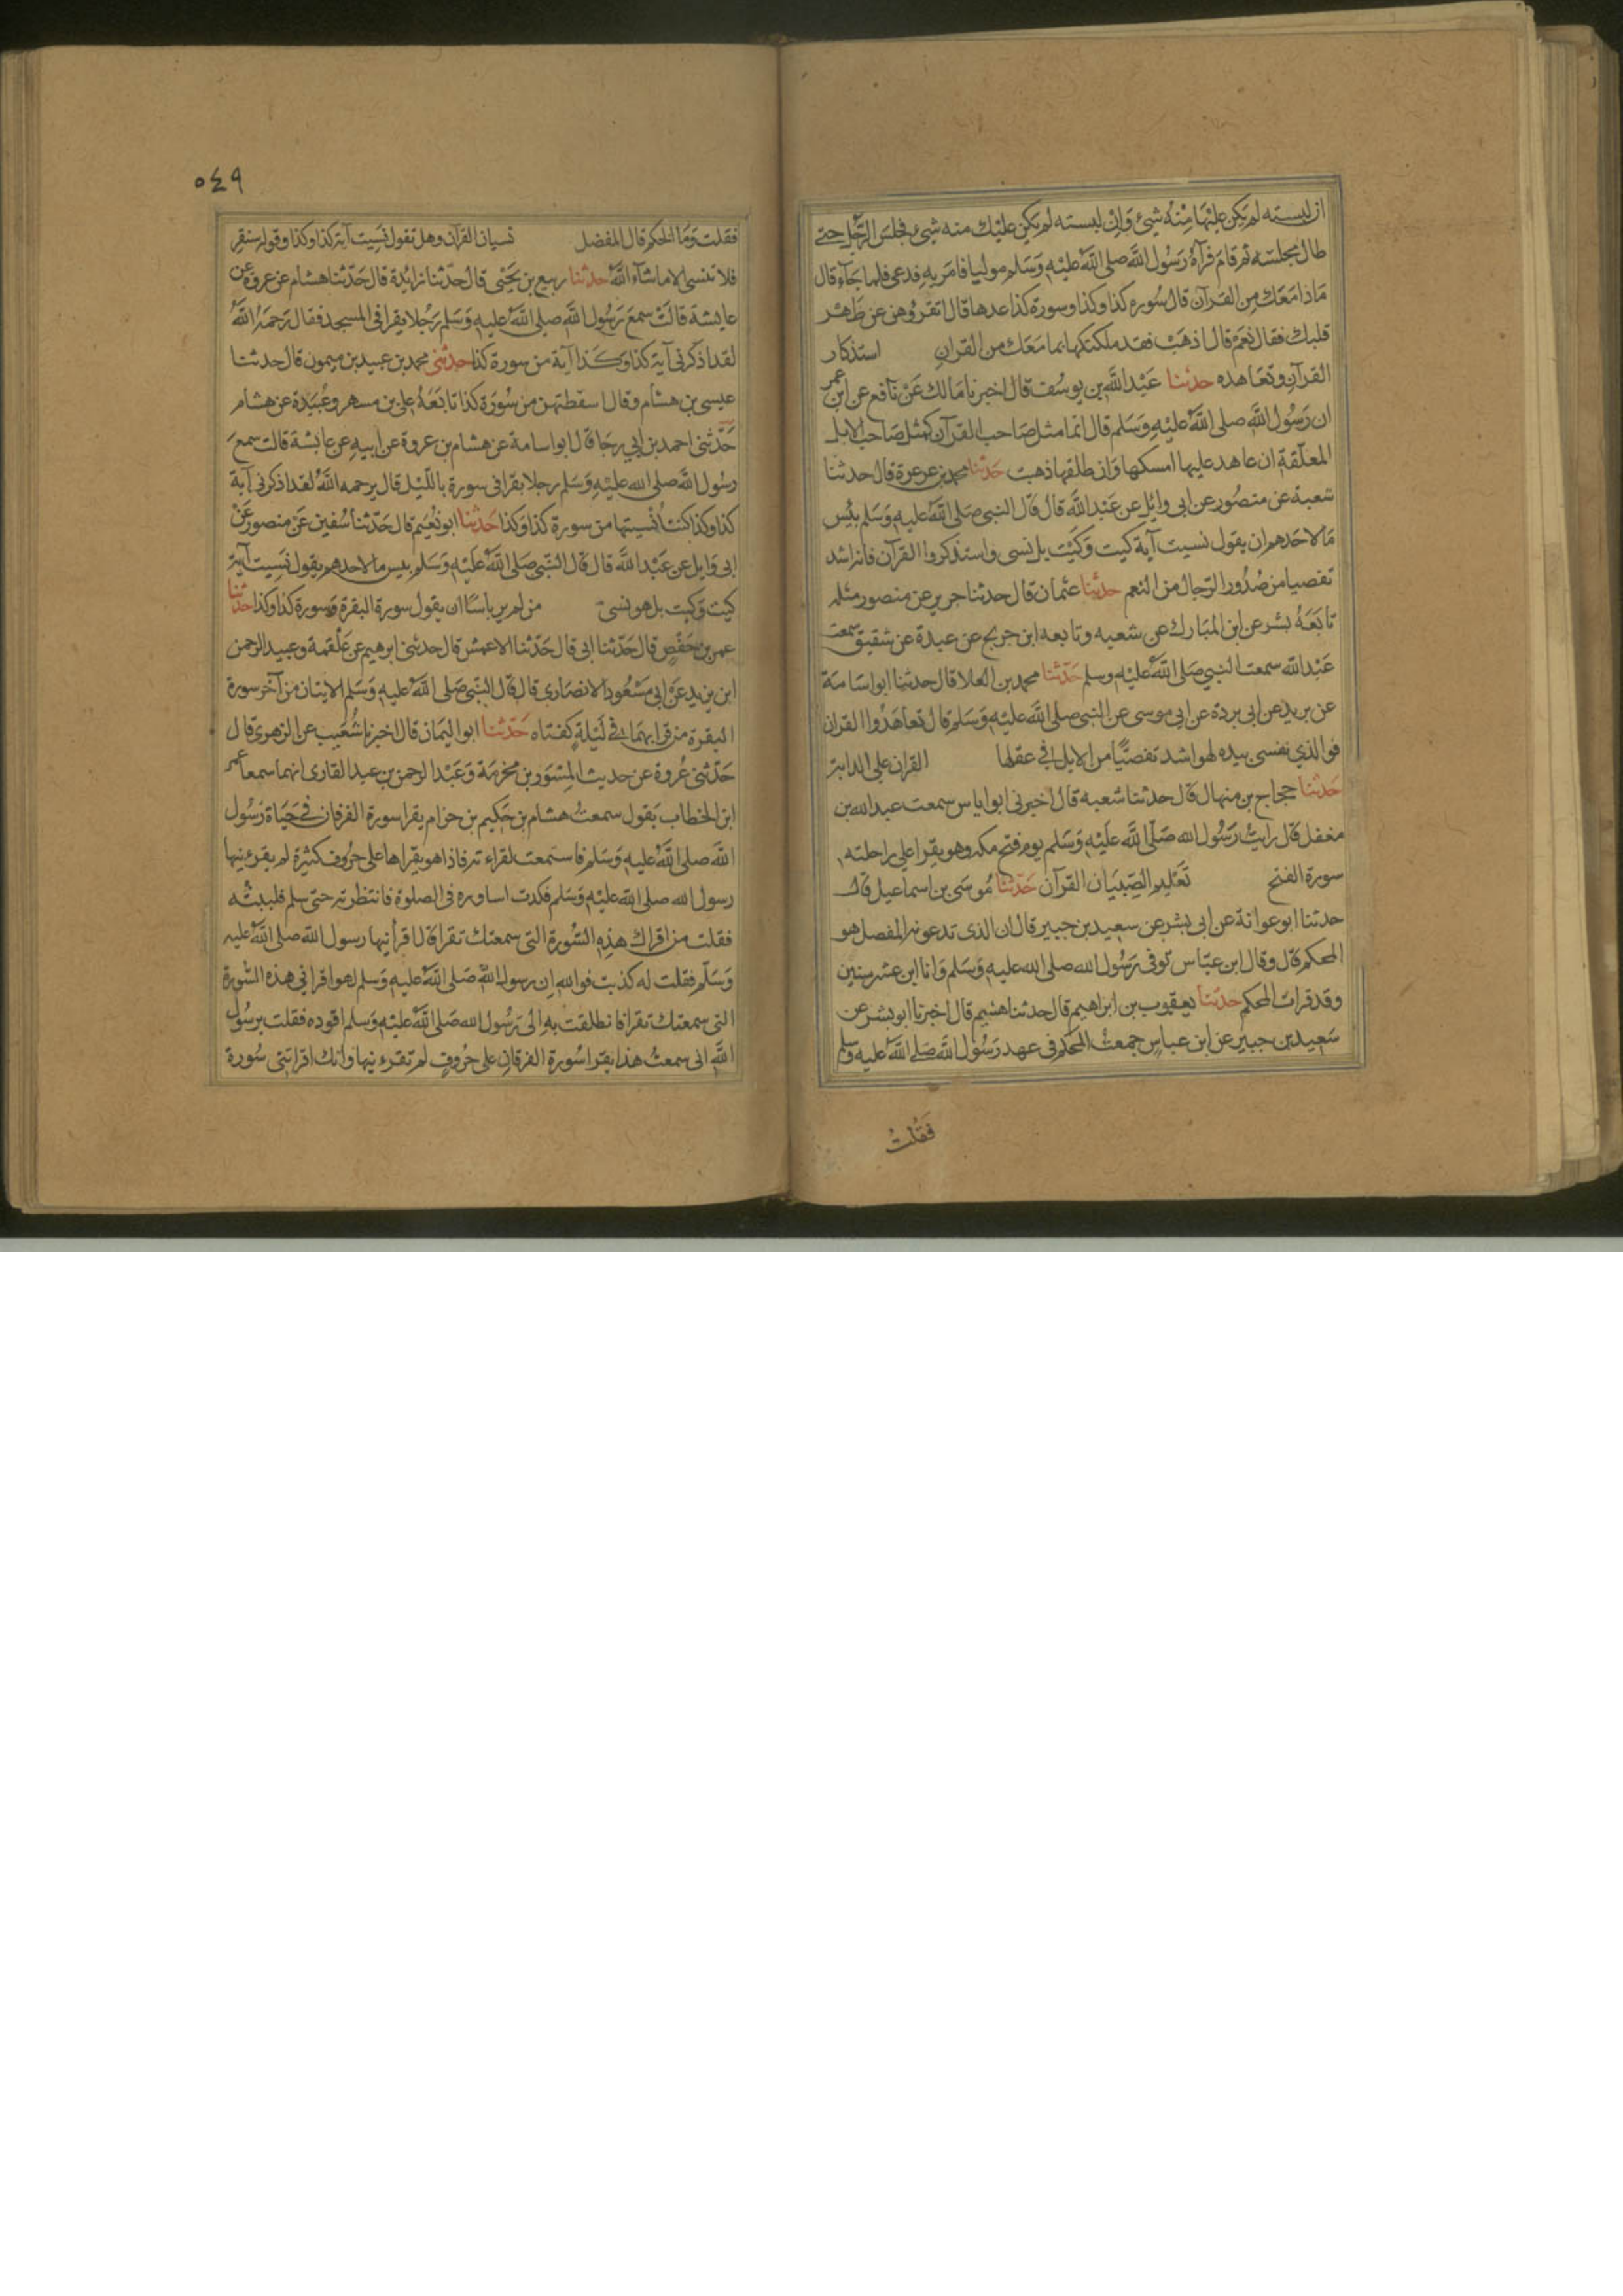 ان لبسته لم يكن عليها منه شيء وان لبسته لم يكن عليك منه شيء فجلس الرجل حتى
طال مجلسه ثم قام فرآه رسول الله صلى الله عليه وسلم موليا فامر به فدعي فلما جاء قال
ماذا معك من القرآن قال سورة كذا وكذا وسورة كذا عدها قال اتقروهن عن ظهر
قلبك فقال نعم قال اذهب فقد ملكتكها بما معك من القران استذكار
القرآن وتعاهده حدثنا عبد الله بن يوسف قال اخبرنا مالك عن نافع عن ابن عمر
ان رسول الله صلى الله عليه وسلم قال انما مثل صاحب القرآن كمثل صاحب الابل
المعلقة ان عاهد عليها امسكها وان طلقها ذهبت حدثنا محمد بن عرعرة قال حدثنا
شعبة عن منصور عن ابي وايل عن عبد الله قال قال النبي صلى الله عليه وسلم بئس
ما لاحدهم ان يقول نسيت آية كيت وكيت بل نسي واستذكروا القرآن فانه اشد
تفصيا من صدور الرجال من النعم حدثنا عثمان قال حدثنا جرير عن منصور مثله
تابعه بشر عن ابن المبارك عن شعبه وتابعه ابن جريج عن عبدة عن شقيق سمعت
عبد الله سمعت النبي صلى الله عليه وسلم حدثنا محمد بن العلا قال حدثنا ابو اسامة
عن بريد عن ابي بردة عن ابي موسى عن النبي صلى الله عليه وسلم قال تعاهدوا القران
فوالذي نفسي بيده لهو اشد تفصيا من الابل في عقلها القران على الدابة
حدثنا حجاج بن منهال قال حدثنا شعبه قال اخبرني ابو اياس سمعت عبد الله بن
مغفل قال رايت رسول الله صلى الله عليه وسلم يوم فتح مكه وهو يقرا على راحلته
سورة الفتح تعليم الصبيان القرآن حدثنا موسى بن اسماعيل قال
حدثنا ابو عوانة عن ابي بشر عن سعيد بن جبير قال ان الذي تدعونه المفصل هو
المحكم قال وقال ابن عباس توفى رسول الله صلى الله عليه وسلم وانا ابن عشر سنين
وقد قرات المحكم حدثنا يعقوب بن ابراهيم قال حدثنا هشيم قال اخبرنا ابو بشر عن
سعيد بن جبير عن ابن عباس جمعت المحكم في عهد رسول الله صلى الله عليه وسلم
فقلت
٥٤٩
فقلت وما المحكم قال المفصل نسيان القرآن وهل تقول نسيت آية كذا وكذا وقوله سنقر
فلا تنسى الا ما شآء الله حدثنا ربيع بن يحيى قال حدثنا زايدة قال حدثنا هشام عن عروة عن
عايشة قالت سمع رسول الله صلى الله عليه وسلم رجلا يقرا في المسجد فقال رحمه الله
لقد اذكرني آية كذا وكذا آية من سورة كذا حدثني محمد بن عبيد بن ميمون قال حدثنا
عيسى بن هشام وقال اسقطتهن من سورة كذا تابعه علي بن مسهر وعبدة عن هشام
حدثني احمد بن ابي رجا قال ابو اسامة عن هشام بن عروة عن ابيه عن عايشة قالت سمع
رسول الله صلى الله عليه وسلم رجلا يقرا في سورة بالليل قال يرحمه الله لقد اذكرني آية
كذا وكذا كنت انسيتها من سورة كذا وكذا حدثنا ابو نعيم قال حدثنا سفين عن منصور عن
ابي وايل عن عبد الله قال قال النبي صلى الله عليه وسلم بيس ما لاحدهم يقول نسيت آية
كيت وكيت بل هو نسي من لم ير باسا ان يقول سورة البقرة وسورة كذا وكذا حدثنا
عمر بن حفص قال حدثنا ابي قال حدثنا الاعمش قال حدثني ابرهيم عن علقمة وعبد الرحمن
ابن يزيد عن ابي مسعود الانصارى قال قال النبي صلى الله عليه وسلم الايتان من آخر سورة
البقرة من قرا بهما في ليلة كفتاه حدثنا ابو اليمان قال اخبرنا شعيب عن الزهري قال
حدثني عروة عن حديث المسور بن مخرمة وعبد الرحمن بن عبد القارى انهما سمعا عمر
ابن الخطاب يقول سمعت هشام بن حكيم بن حزام يقرا سورة الفرقان في حياة رسول
الله صلى الله عليه وسلم فاستمعت لقراءته فاذا هو يقراها على حروف كثيرة لم يقرءنيها
رسول الله صلى الله عليه وسلم فكدت اساوره في الصلوة فانتظرته حتى سلم فلببته
فقلت من اقراك هذه السورة التي سمعتك تقرا قال اقرانيها رسول الله صلى الله عليه
وسلم فقلت له كذبت فوالله ان رسول الله صلى الله عليه وسلم لهو اقراني هذه السورة
التي سمعتك تقرا فانطلقت به الى رسول الله صلى الله عليه وسلم اقوده فقلت يرسول
الله اني سمعت هذا يقرا سورة الفرقان على حروف لم تقرءنيها وانك اقراتني سورة